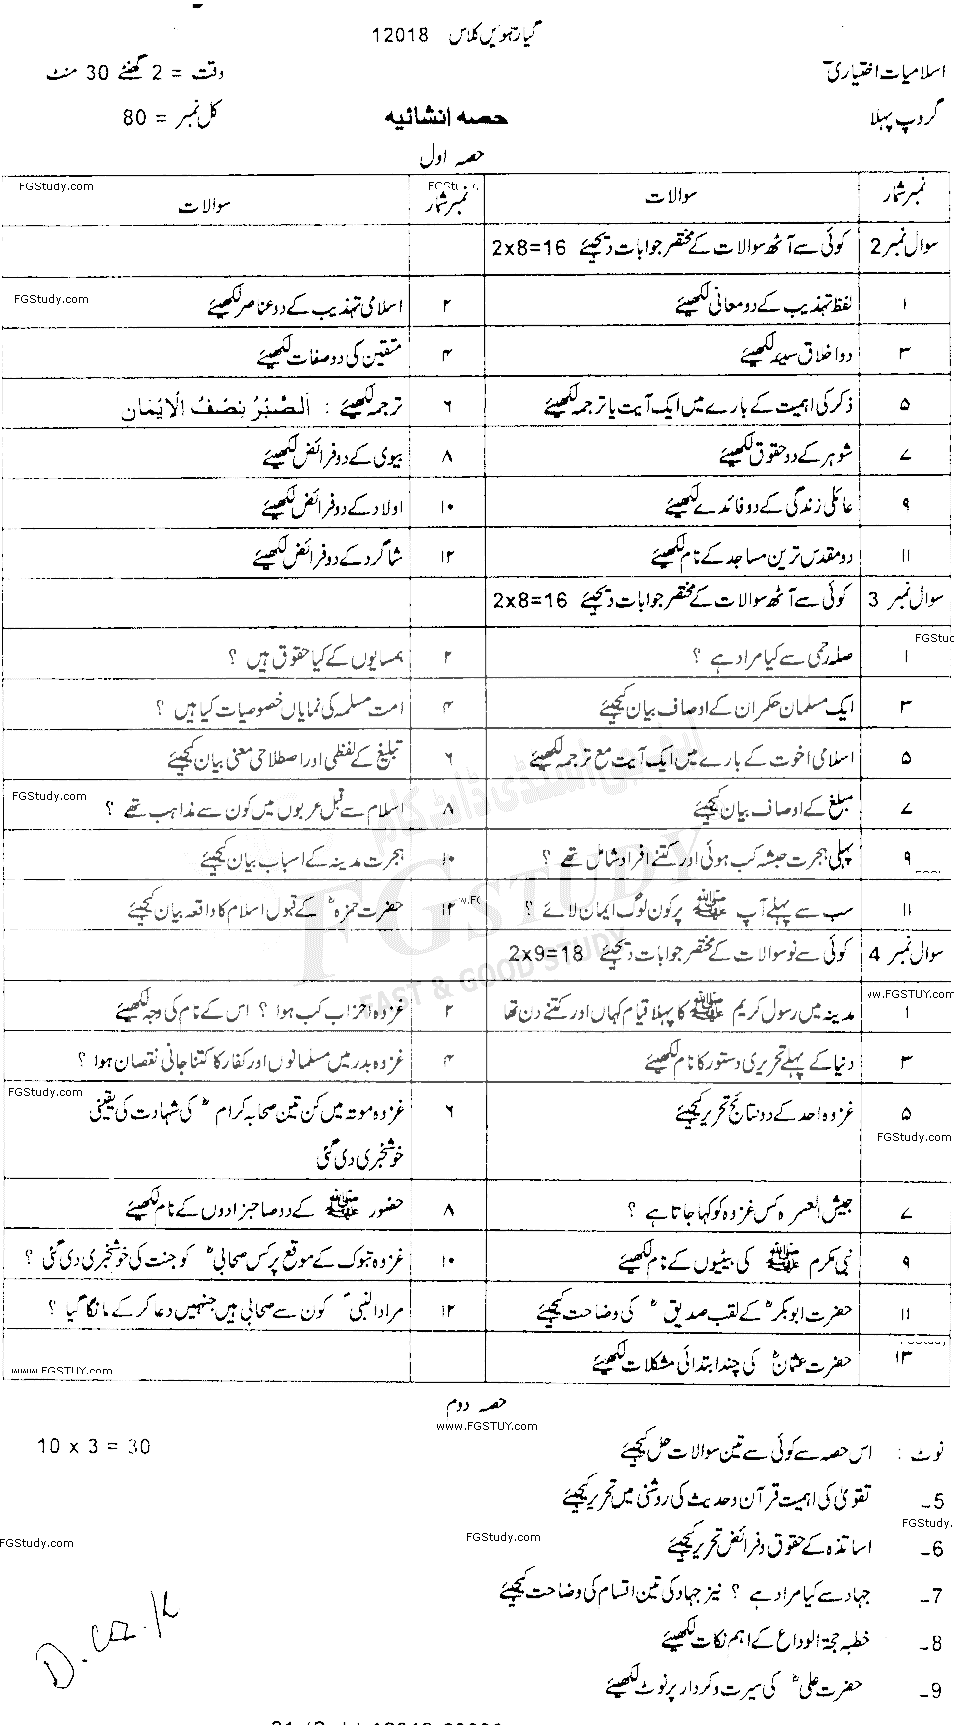 گیارہویں کلاس 12018
اسلامیات اختیاری
وقت = 2 گھنٹے 30 منٹ
گروپ پہلا
حصہ انشائیہ
کل نمبر = 80
حصہ اول
نمبر شمار سوالات نمبر شمار سوالات
FGStudy.com
سوال نمبر 2 کوئی سے آٹھ سوالات کے مختصر جوابات دیجیئے 2x8=16
۱ لفظ تہذیب کے دو معانی لکھیئے
۲ اسلامی تہذیب کے دو عناصر لکھیئے
FGStudy.com
۳ دو اخلاق سیئہ لکھیئے
۴ متقین کی دو صفات لکھیئے
۵ ذکر کی اہمیت کے بارے میں ایک آیت یا ترجمہ لکھیئے
۶ ترجمہ لکھیئے : اَلصَّبْرُ نِصْفُ الْاِیْمَان
۷ شوہر کے دو حقوق لکھیئے
۸ بیوی کے دو فرائض لکھیئے
۹ عائلی زندگی کے دو فائدے لکھیئے
۱۰ اولاد کے دو فرائض لکھیئے
۱۱ دو مقدس ترین مساجد کے نام لکھیئے
۱۲ شاگرد کے دو فرائض لکھیئے
سوال نمبر 3 کوئی سے آٹھ سوالات کے مختصر جوابات دیجیئے 2x8=16
۱ صلہ رحمی سے کیا مراد ہے ؟
۲ ہمسایوں کے کیا حقوق ہیں ؟
۳ ایک مسلمان حکمران کے اوصاف بیان کیجیئے
۴ امت مسلمہ کی نمایاں خصوصیات کیا ہیں ؟
۵ اسلامی اخوت کے بارے میں ایک آیت مع ترجمہ لکھیئے
۶ تبلیغ کے لفظی اور اصطلاحی معنی بیان کیجیئے
۷ مبلغ کے اوصاف بیان کیجیئے
۸ اسلام سے قبل عربوں میں کون سے مذاہب تھے ؟
FGStudy.com
۹ پہلی ہجرت حبشہ کب ہوئی اور کتنے افراد شامل تھے ؟
۱۰ ہجرت مدینہ کے اسباب بیان کیجیئے
۱۱ سب سے پہلے آپ ﷺ پر کون لوگ ایمان لائے ؟
۱۲ حضرت حمزہؓ کے قبول اسلام کا واقعہ بیان کیجیئے
سوال نمبر 4 کوئی سے نو سوالات کے مختصر جوابات دیجیئے 2x9=18
۱ مدینہ میں رسول کریم ﷺ کا پہلا قیام کہاں اور کتنے دن تھا
۲ غزوہ احزاب کب ہوا ؟ اس کے نام کی وجہ لکھیئے
ww.FGSTUY.com
۳ دنیا کے پہلے تحریری دستور کا نام لکھیئے
۴ غزوہ بدر میں مسلمانوں اور کفار کا کتنا جانی نقصان ہوا ؟
FGStudy.com
۵ غزوہ احد کے دو نتائج تحریر کیجیئے
۶ غزوہ موتہ میں کن تین صحابہ کرامؓ کی شہادت کی یقینی
خوشخبری دی گئی
FGStudy.com
۷ جیش العسرہ کس غزوہ کو کہا جاتا ہے ؟
۸ حضور ﷺ کے دو صاحبزادوں کے نام لکھیئے
۹ نبی مکرم ﷺ کی بیٹیوں کے نام لکھیئے
۱۰ غزوہ تبوک کے موقع پر کس صحابیؓ کو جنت کی خوشخبری دی گئی ؟
۱۱ حضرت ابوبکرؓ کے لقب صدیقؓ کی وضاحت کیجیئے
۱۲ مراد النبیؐ کون سے صحابی ہیں جنہیں دعا کر کے مانگا گیا ؟
۱۳ حضرت عثمانؓ کی چند ابتدائی مشکلات لکھیئے
www.FGSTUY.com
FGSTUDY
FAST & GOOD STUDY
حصہ دوم
www.FGSTUY.com
نوٹ : اس حصہ سے کوئی سے تین سوالات حل کیجیئے 10 x 3 = 30
5۔ تقویٰ کی اہمیت قرآن و حدیث کی روشنی میں تحریر کیجیئے
FGStudy.
6۔ اساتذہ کے حقوق و فرائض تحریر کیجیئے
FGStudy.com
FGStudy.com
7۔ جہاد سے کیا مراد ہے ؟ نیز جہاد کی تین اقسام کی وضاحت کیجیئے
8۔ خطبہ حجۃ الوداع کے اہم نکات لکھیئے
9۔ حضرت علیؓ کی سیرت و کردار پر نوٹ لکھیئے